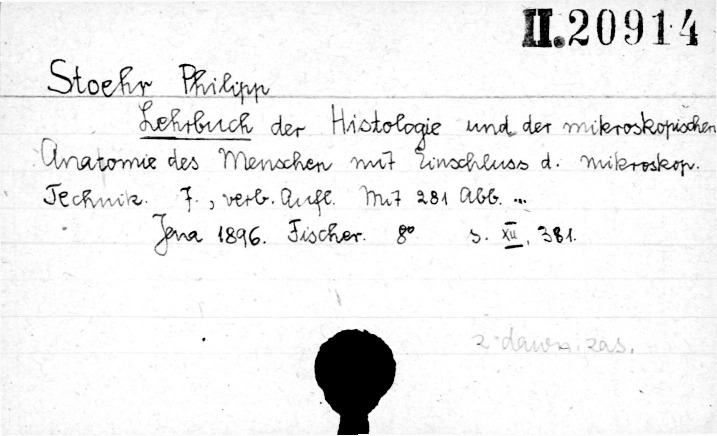 II.20914
Stoehr Philipp
Lehrbuch der Histologie und der mikroskopischen
Anatomie des Menschen mit Einschluss d. mikroskop.
Technik. 7., verb. Aufl. Mit 281 Abb. ...
Jena 1896. Fischer. 8° s. XII, 381.
z dawn. zas.